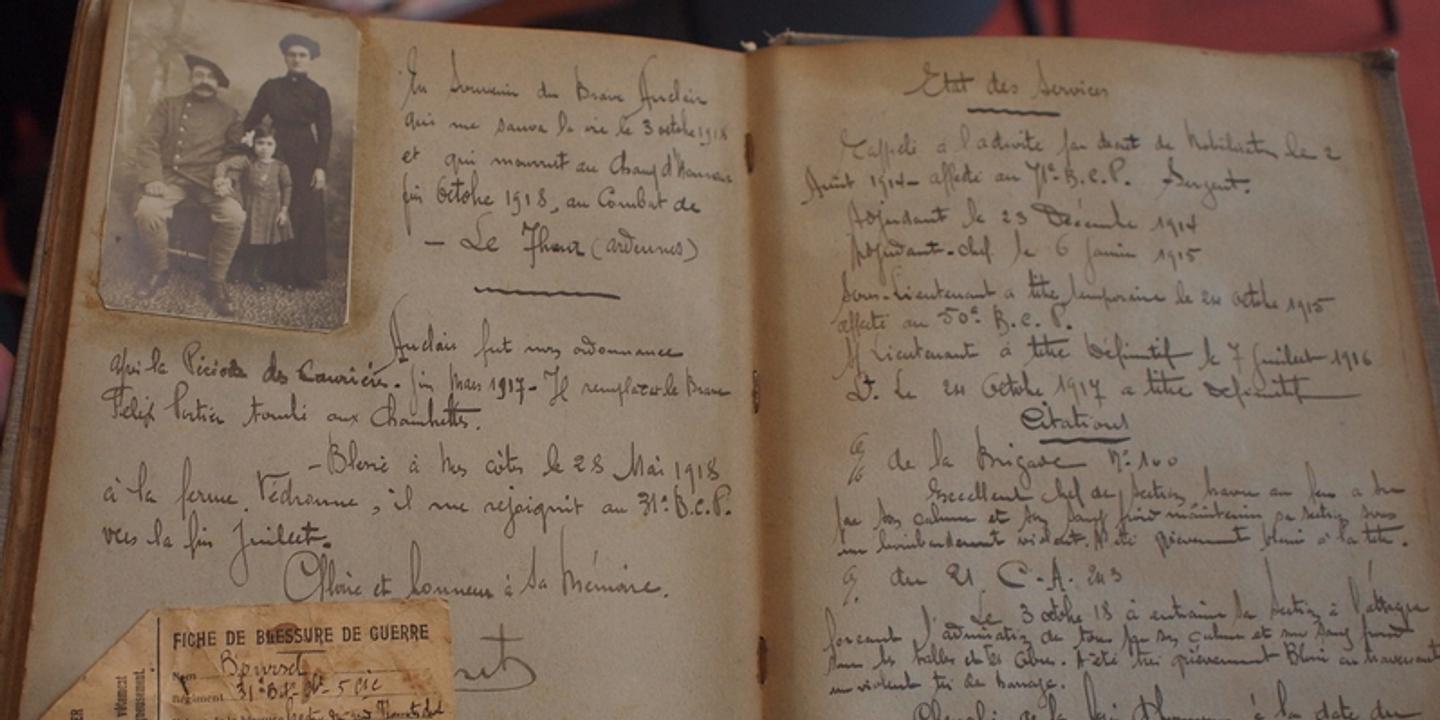 En Souvenir du Brave Auclair
qui me sauva la vie le 3 octobre 1918
et qui mourut au Champ d'Honneur
fin Octobre 1918, au Combat de
– Le Thour (ardennes)
Auclair fut mon ordonnance
après la des Caurières. fin Mars 1917 – Il remplaça le Brave
Felix tombé aux Chambrettes.
– Blessé à mes côtés le 28 Mai 1918
à la ferme Védronne, il me rejoignit au 31e B.C.P.
vers la fin Juillet.
Gloire et honneur à Sa Mémoire.
FICHE DE BLESSURE DE GUERRE
Nom
Régiment 31e 5 Cie
Etat des Services
Rappelé à l'activité par décret de Mobilisation le 2
Août 1914 – affecté au 71e B.C.P. Sergent.
Adjudant le 23 Décembre 1914
Adjudant-chef le 6 Janvier 1915
Sous-Lieutenant a titre temporaire le 24 Octobre 1915
affecté au 50e B.C.P.
Lieutenant à titre Définitif le 7 Juillet 1916
Le 24 Octobre 1917 a titre Définitif
Citations
de la Brigade N° 100
Excellent chef de section, brave au feu a su
par son calme et son sang froid maintenir sa section sous
un bombardement violent. A été grièvement blessé à la tête.
du 21 C.A. 243
Le 3 octobre 18 à entrainé sa section à l'attaque
forçant l'admiration de tous par son calme et son sang froid
sous les balles et les obus. A été très grièvement Blessé en traversant
un violent tir de barrage.